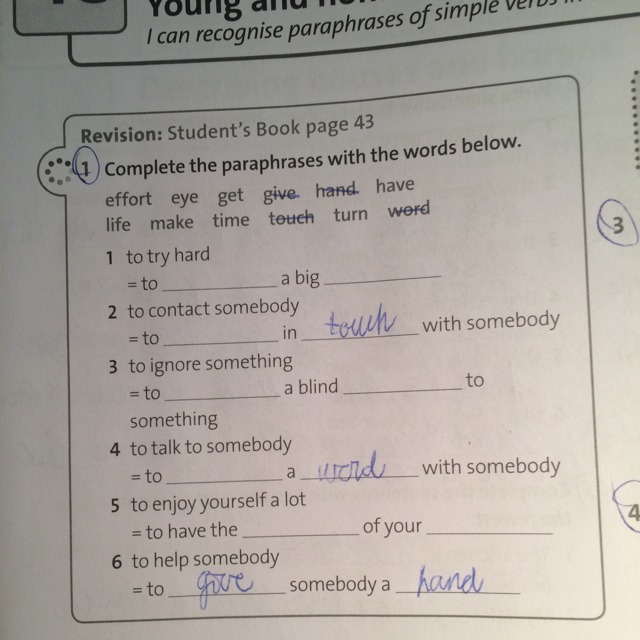 Young and
I can recognise paraphrases of simple verbs in
Revision: Student's Book page 43
1 Complete the paraphrases with the words below.
effort eye get give hand have
life make time touch turn word
1 to try hard
= to ____________ a big ____________
2 to contact somebody
= to ____________ in touch with somebody
3 to ignore something
= to ____________ a blind ____________ to
something
4 to talk to somebody
= to ____________ a word with somebody
5 to enjoy yourself a lot
= to have the ____________ of your ____________
6 to help somebody
= to give somebody a hand
3
4